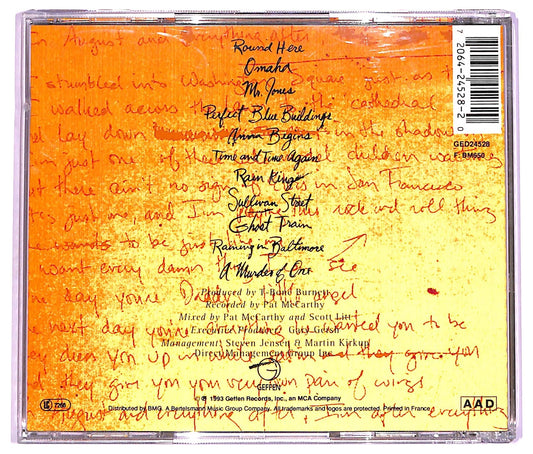 in August and everything after
Round Here
Omaha
Mr. Jones
Perfect Blue Buildings
Anna Begins
Time and Time Again
Rain King
Sullivan Street
Ghost Train
Raining in Baltimore
A Murder of One
I stumbled into Washington Square just as
I walked across the cathedral
lay down in the shadow
just one of children
there ain't no sign in San Francisco
just me, and I'm rock and roll thing
to be just
want every damn thing see
day you're Daddy's angel
next day you're wanted you to be
dress you up in and they give you
they give you your very own pair of wings
August and everything after, I'm after everything
Produced by T-Bone Burnett
Recorded by Pat McCarthy
Mixed by Pat McCarthy and Scott Litt
Executive Producer: Gary Gersh
Management: Steven Jensen & Martin Kirkup
Direct Management Group Inc
GEFFEN
℗ 1993 Geffen Records, Inc., an MCA Company
Distributed by BMG. A Bertelsmann Music Group Company. All trademarks and logos are protected. Printed in France.
AAD
7 20642-45282 0
7 2064-24528-2 0
GED24528
F: BM650